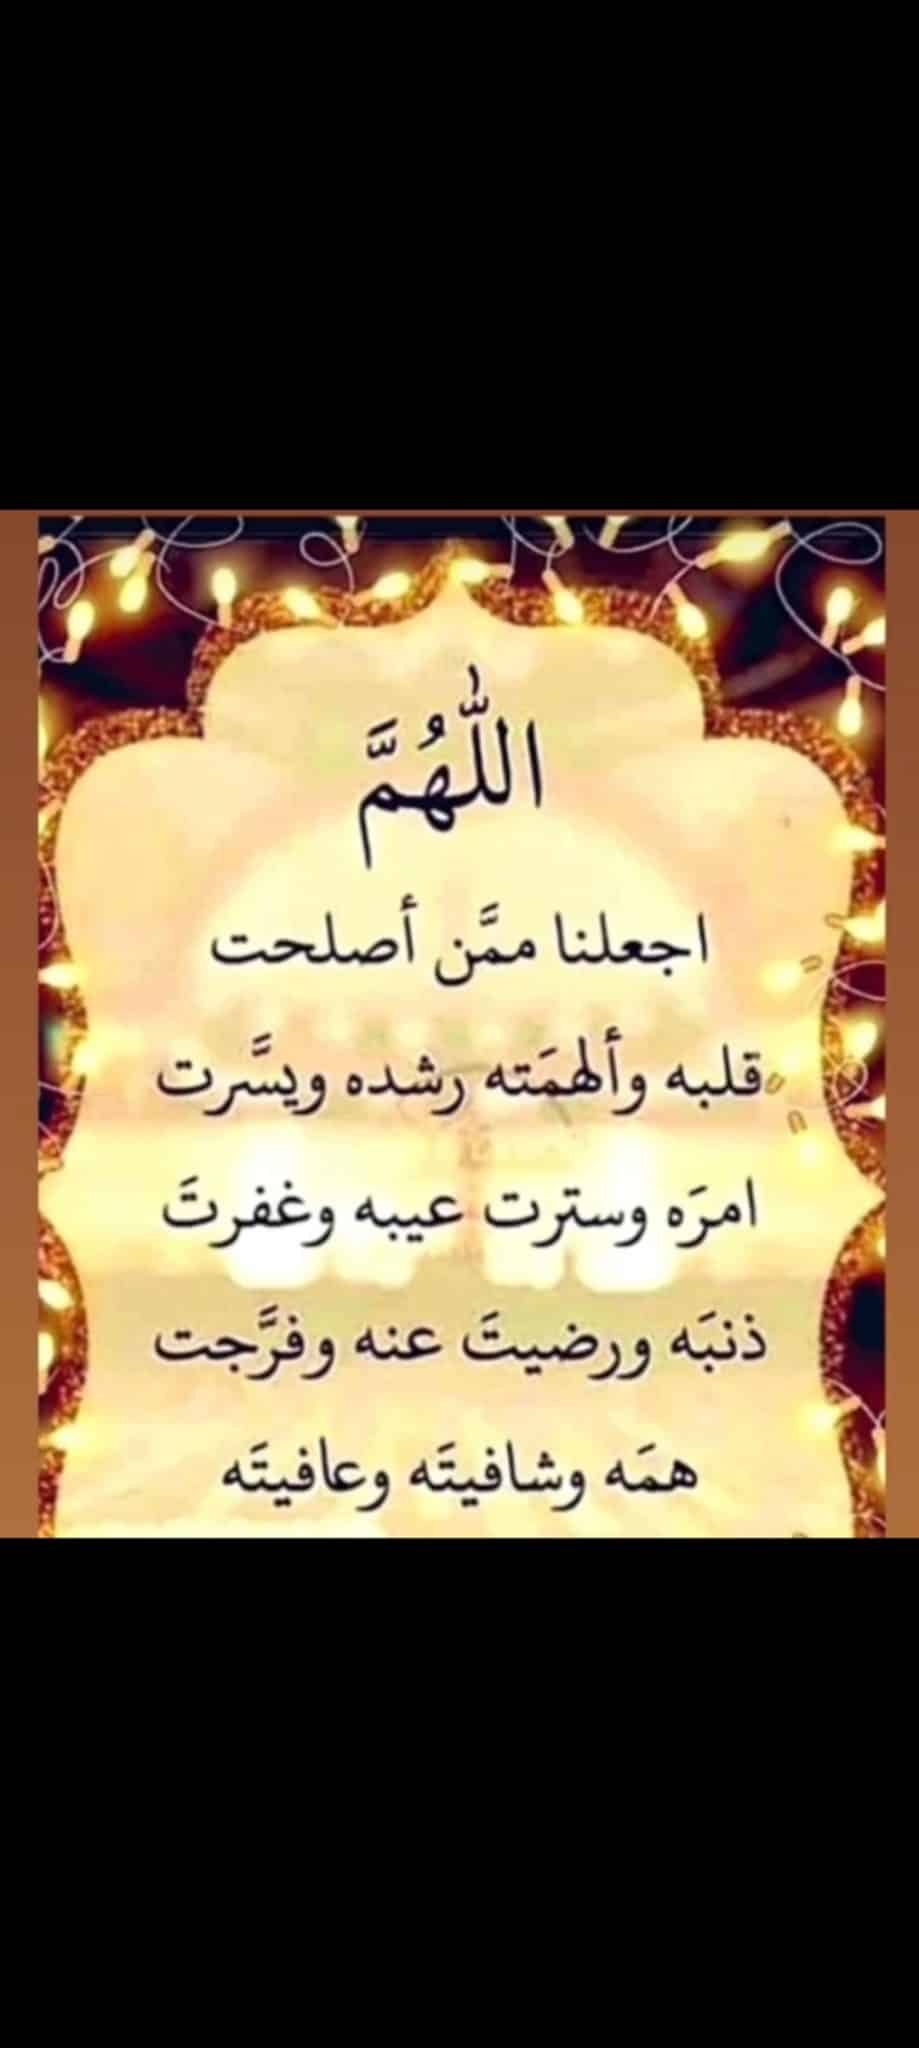 اللّٰهُمَّ
اجعلنا ممَّن أصلحت
قلبه وألهمَته رشده ويسَّرت
امرَه وسترت عيبه وغفرتَ
ذنبَه ورضيتَ عنه وفرَّجت
همَه وشافيتَه وعافيتَه